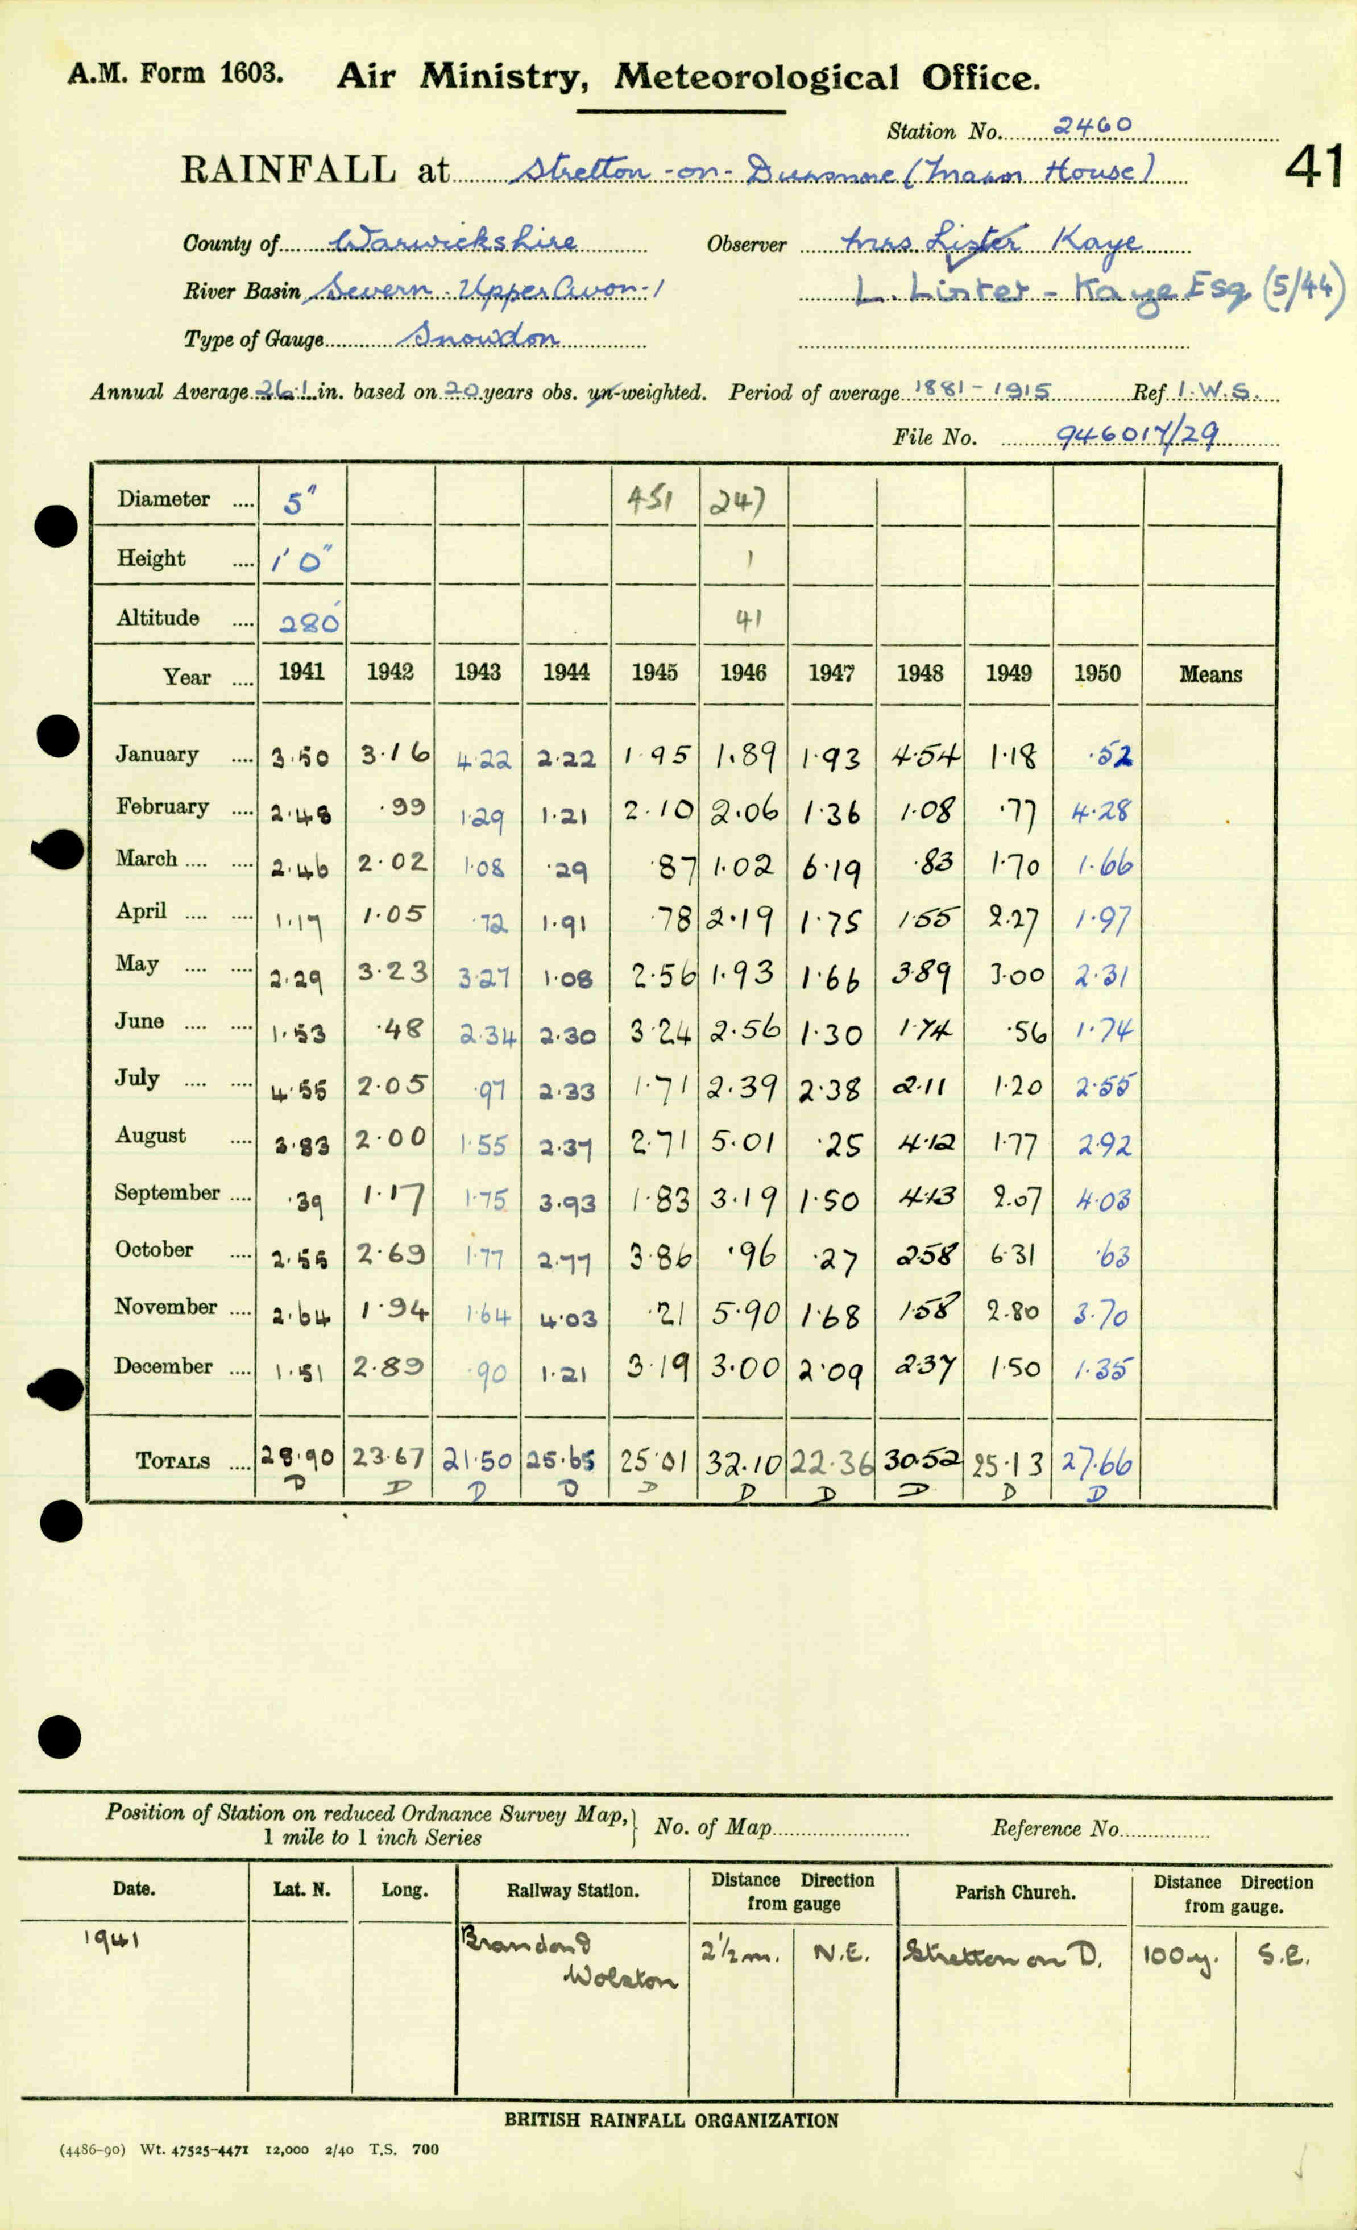 A.M. Form 1603. Air Ministry, Meteorological Office.
Station No. 2460
RAINFALL at Stretton-on-Dunsmore (Manor House) 41
County of Warwickshire Observer Mrs Lister Kaye
River Basin Severn. Upper Avon-1 L. Lister-Kaye Esq (5/44)
Type of Gauge Snowdon
Annual Average 26.1 in. based on 20 years obs. un-weighted. Period of average 1881-1915 Ref I.W.S.
File No. 946017/29
Diameter .... 5" 451 247
Height .... 1'0" 1
Altitude .... 280' 41
Year .... 1941 1942 1943 1944 1945 1946 1947 1948 1949 1950 Means
January .... 3.50 3.16 4.22 2.22 1.95 1.89 1.93 4.54 1.18 .52
February .... 2.48 .99 1.29 1.21 2.10 2.06 1.36 1.08 .77 4.28
March .... .... 2.46 2.02 1.08 .29 .87 1.02 6.19 .83 1.70 1.66
April .... .... 1.17 1.05 .72 1.91 .78 2.19 1.75 1.55 2.27 1.97
May .... .... 2.29 3.23 3.27 1.08 2.56 1.93 1.66 3.89 3.00 2.31
June .... .... 1.53 .48 2.34 2.30 3.24 2.56 1.30 1.74 .56 1.74
July .... .... 4.55 2.05 .97 2.33 1.71 2.39 2.38 2.11 1.20 2.55
August .... 3.83 2.00 1.55 2.37 2.71 5.01 .25 4.12 1.77 2.92
September .... .39 1.17 1.75 3.93 1.83 3.19 1.50 4.13 2.07 4.03
October .... 2.55 2.69 1.77 2.77 3.86 .96 .27 2.58 6.31 .63
November .... 2.64 1.94 1.64 4.03 .21 5.90 1.68 1.58 2.80 3.70
December .... 1.51 2.89 .90 1.21 3.19 3.00 2.09 2.37 1.50 1.35
TOTALS .... 28.90 23.67 21.50 25.65 25.01 32.10 22.36 30.52 25.13 27.66
D D D D D D D D D D
Position of Station on reduced Ordnance Survey Map, } No. of Map Reference No.
1 mile to 1 inch Series
Date. Lat. N. Long. Railway Station. Distance Direction from gauge Parish Church. Distance Direction from gauge.
1941 Brandon & 2½m. N.E. Stretton on D. 100y. S.E.
Wolston
BRITISH RAINFALL ORGANIZATION
(4486-90) Wt. 47525-4471 12,000 2/40 T.S. 700